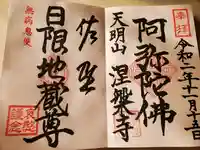 奉拝
令和二年十一月十五日
阿弥陀佛
天明山 涅槃寺
佐野
日限地蔵尊
無病息災